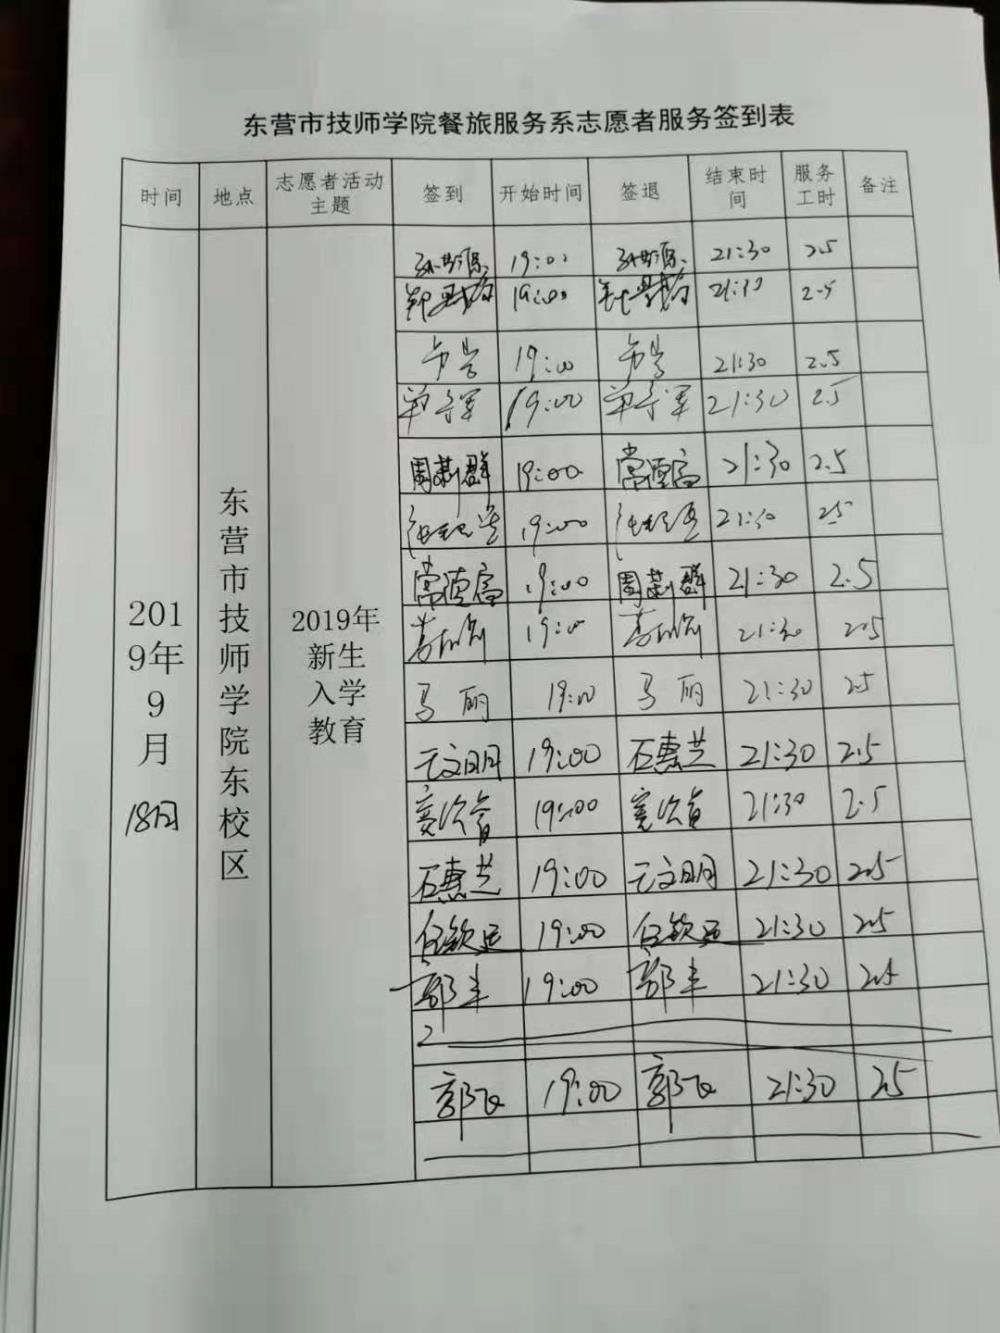 东营市技师学院餐旅服务系志愿者服务签到表
时间 地点 志愿者活动主题 签到 开始时间 签退 结束时间 服务工时 备注
2019年9月18日 东营市技师学院东校区 2019年新生入学教育
19:00 21:30 2.5
19:00 21:30 2.5
19:00 21:30 2.5
单子军 19:00 单子军 21:30 2.5
周莉群 19:00 常德富 21:30 2.5
19:00 21:30 2.5
常德富 19:00 周莉群 21:30 2.5
19:00 21:30 2.5
马丽 19:00 马丽 21:30 2.5
亓文明 19:00 石惠芝 21:30 2.5
19:00 21:30 2.5
石惠芝 19:00 亓文明 21:30 2.5
任钦运 19:00 任钦运 21:30 2.5
郭丰 19:00 郭丰 21:30 2.5
郭飞 19:00 郭飞 21:30 2.5